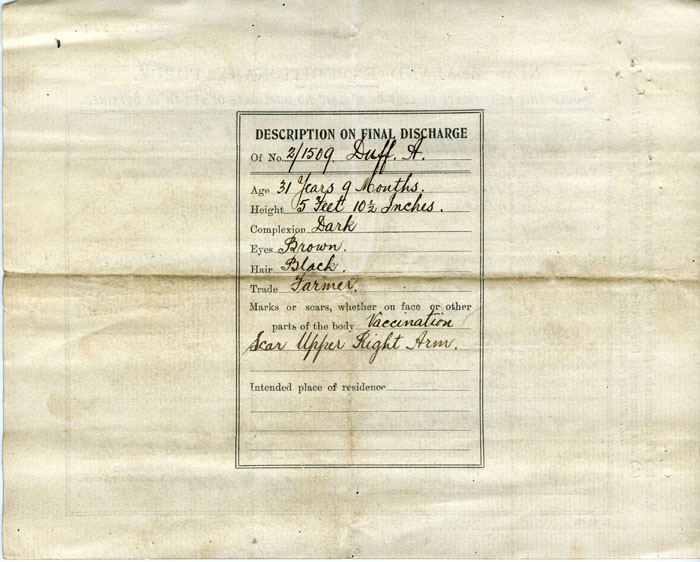 DESCRIPTION ON FINAL DISCHARGE
Of No. 2/1509 Duff. A.
Age 31 Years 9 Months.
Height 5 Feet 10½ Inches.
Complexion Dark
Eyes Brown.
Hair Black.
Trade Farmer.
Marks or scars, whether on face or other
parts of the body Vaccination
Scar Upper Right Arm.
Intended place of residence